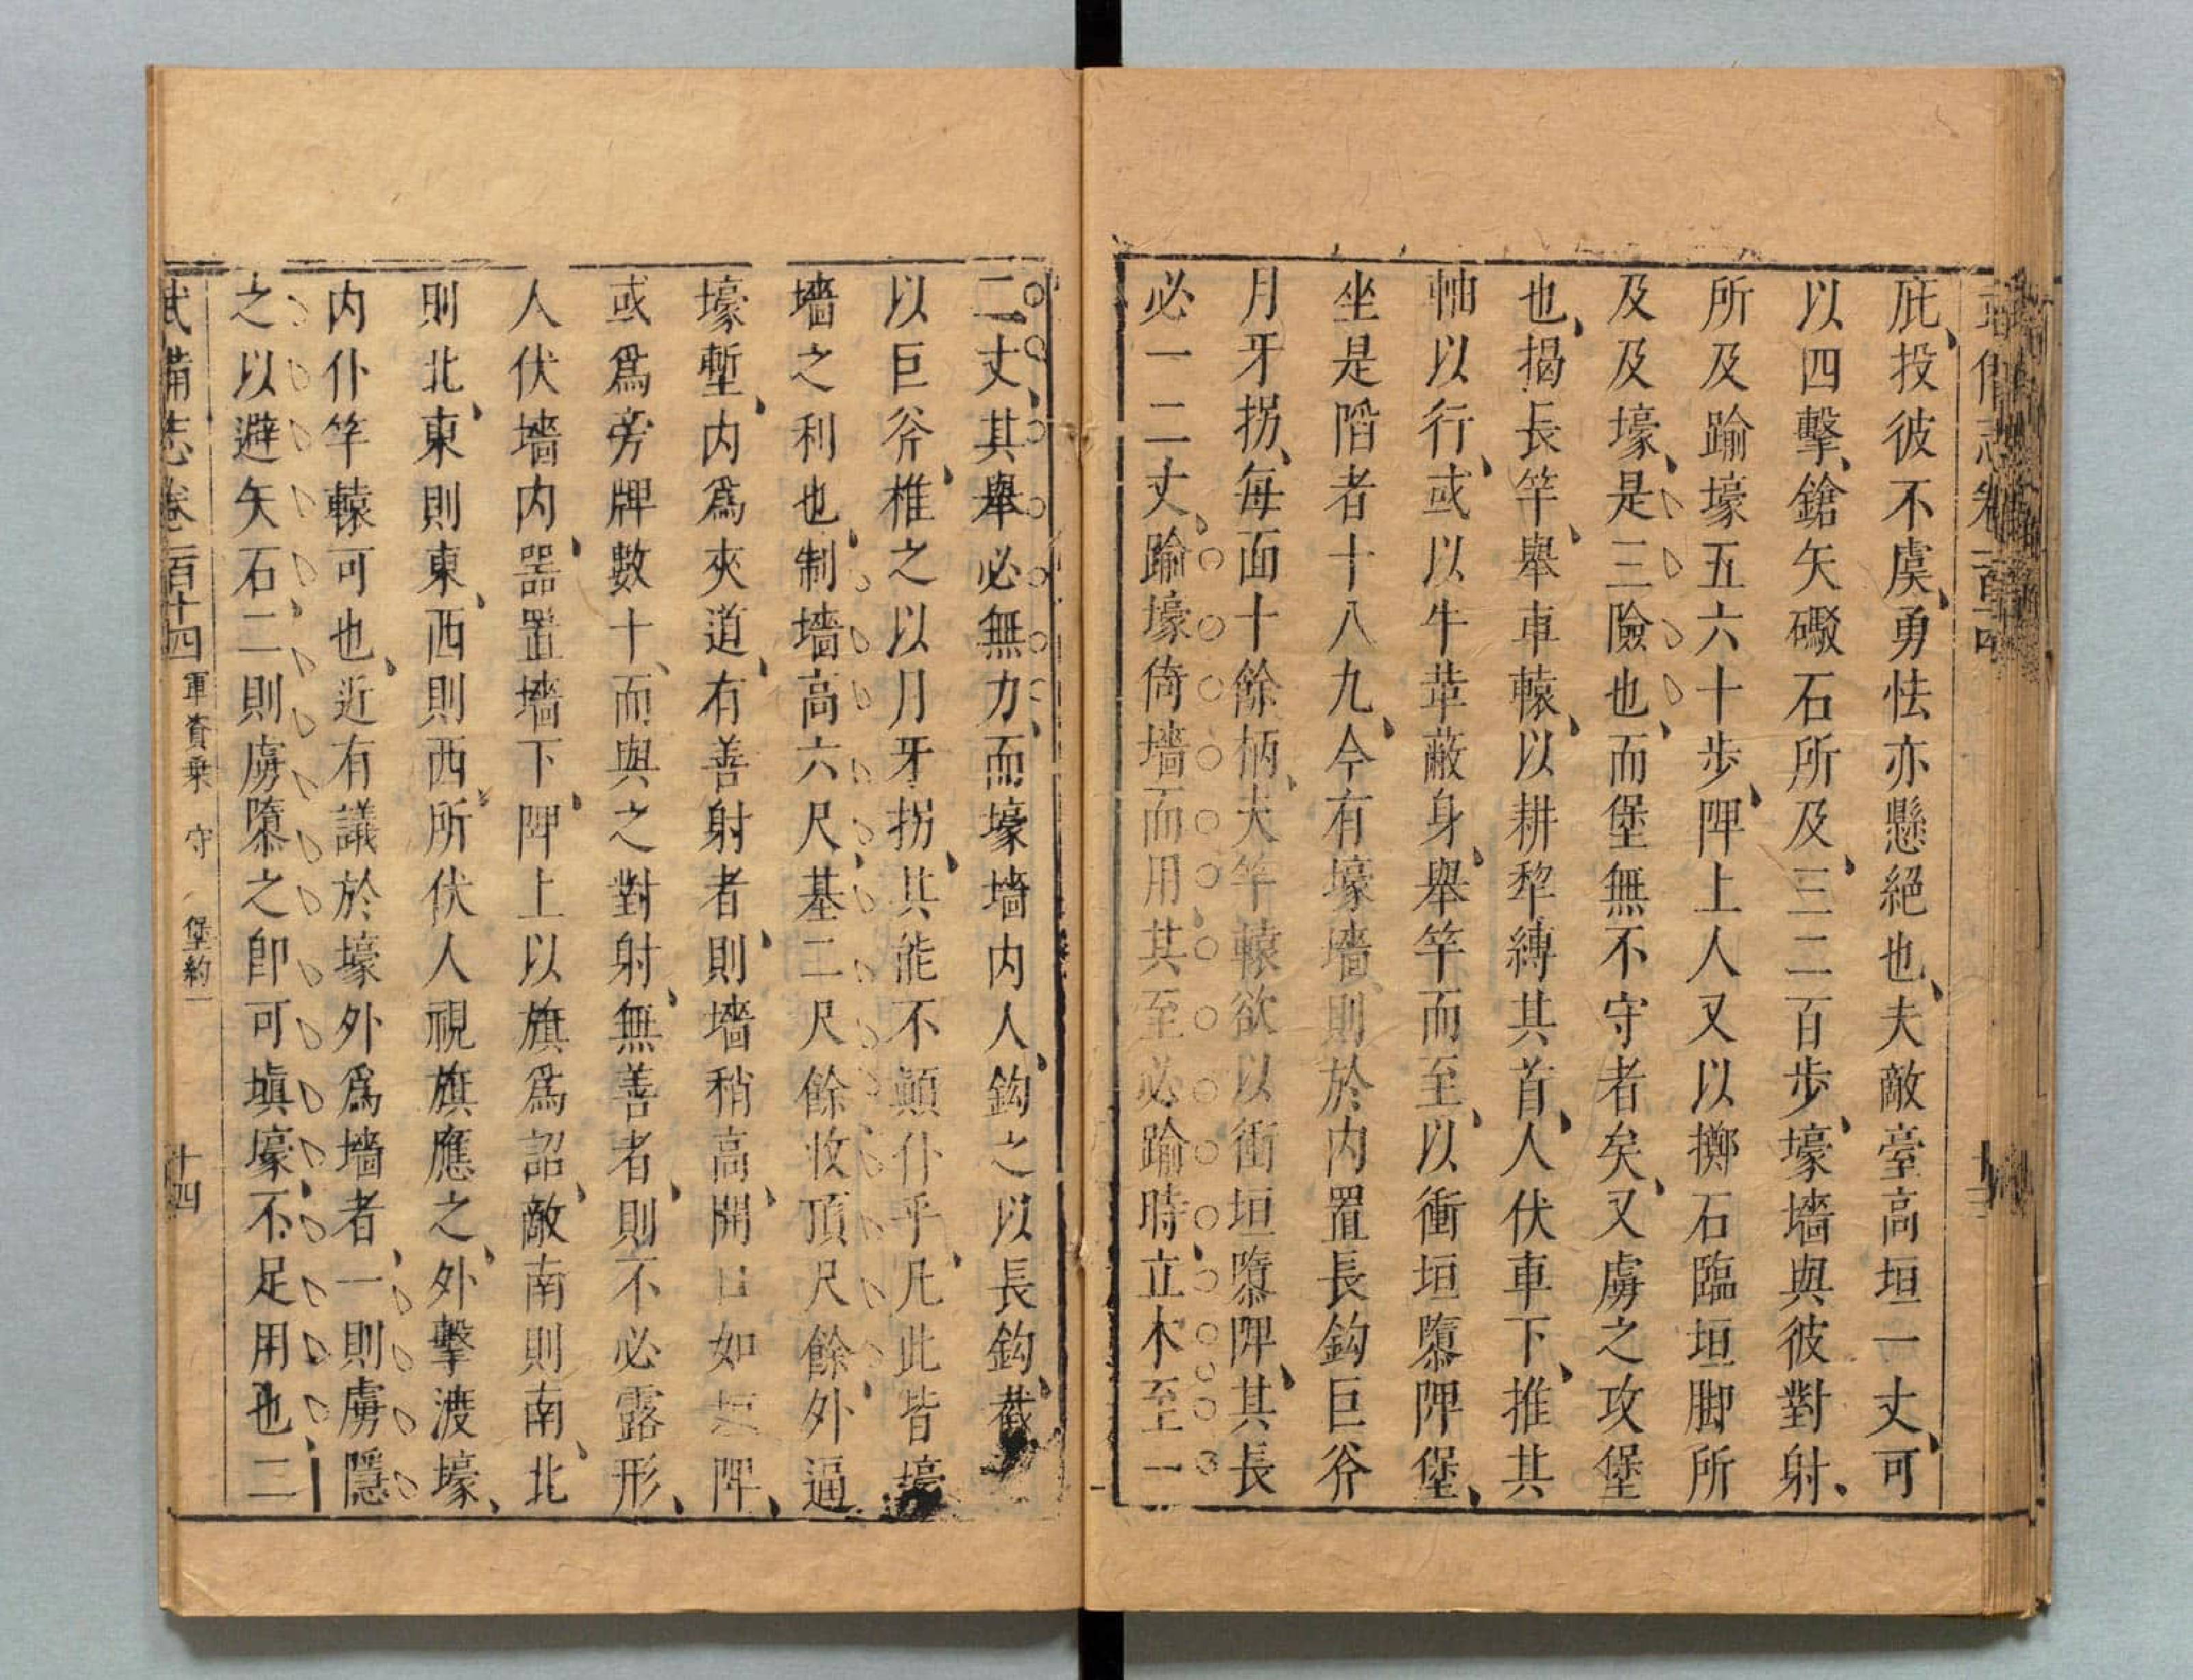 庇投彼不虞勇怯亦懸絕也夫敵臺高垣一丈可
以四擊鎗矢礮石所及三二百步壕墻與彼對射
所及踰壕五六十步陴上人又以擲石臨垣脚所
及及壕是三險也而堡無不守者矣又虜之攻堡
也揭長竿舉車轅以耕犂縛其首人伏車下推其
軸以行或以牛革蔽身舉竿而至以衝垣隳陴堡
坐是陷者十八九今有壕墻則於內置長鈎巨斧
月牙拐每面十餘柄夫竿轅欲以衝垣隳陴其長
必一二丈踰壕倚墻而用其至必踰時立木至一
二丈其舉必無力而壕墻內人鈎之以長鈎截
以巨斧椎之以月牙拐其能不顛仆乎凡此皆壕
墻之利也制墻高六尺基二尺餘收頂尺餘外逼
壕塹內爲夾道有善射者則墻稍高開 如 陴
或爲旁牌數十而與之對射無善者則不必露形
人伏墻內器置墻下陴上以旗爲詔敵南則南北
則北東則東西則西所伏人視旗應之外擊渡壕
內仆竿轅可也近有議於壕外爲墻者一則虜隱
之以避矢石二則虜隳之卽可塡壕不足用也二
武備志卷二百十四 軍資乘 守 堡約一 十四